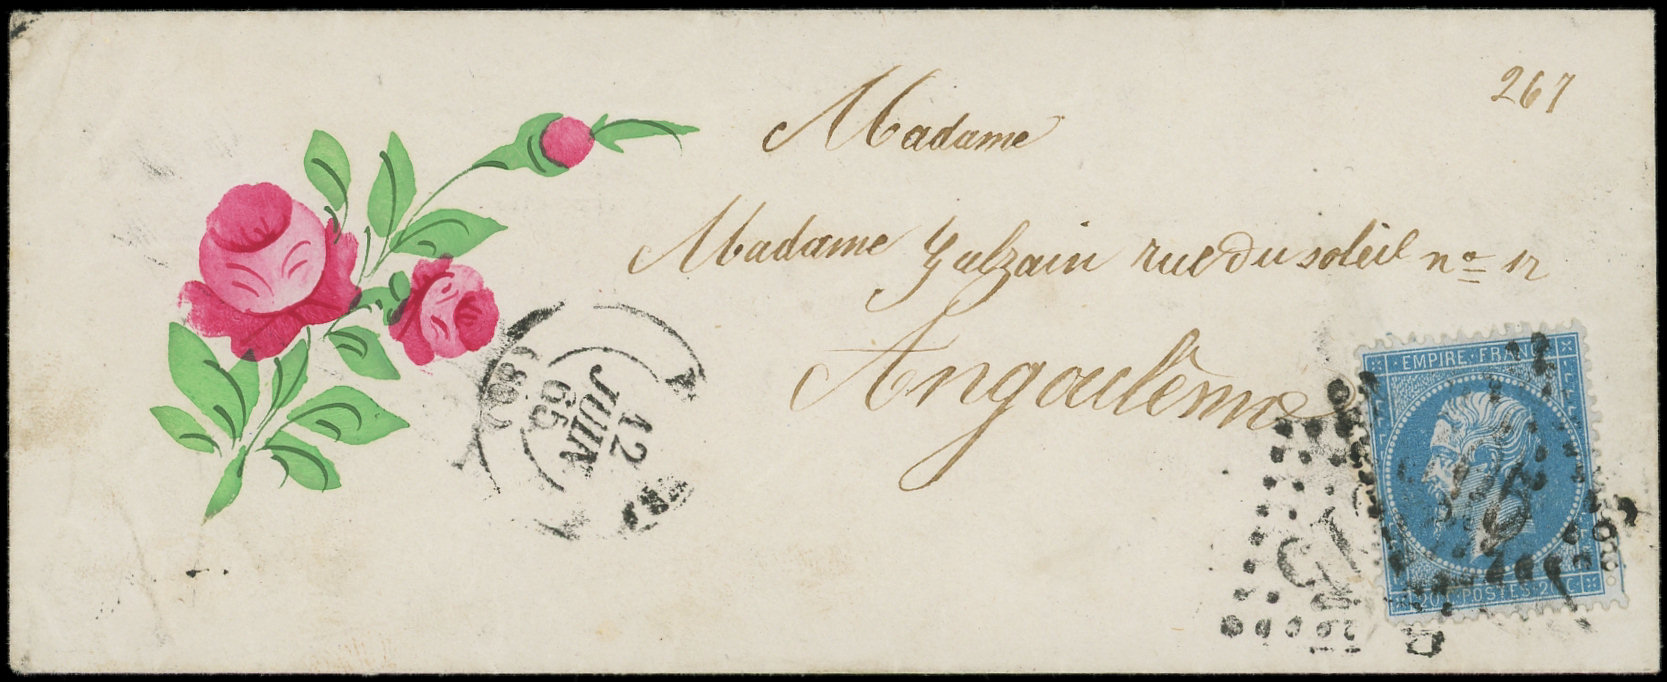 267
Madame
Madame Galzain rue du soleil no 12
Angoulême
12
JUIN
65
(80)
EMPIRE FRANC
20 C POSTES 20 C